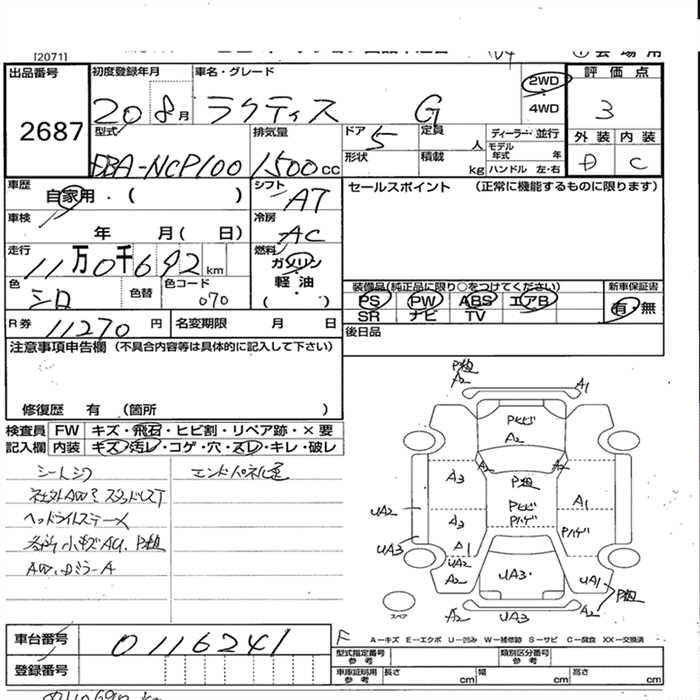 [2071]
出品番号 2687
初度登録年月 20 8月
車名・グレード ラクティス G
2WD
4WD
評価点 3
外装 内装 C
型式 DBA-NCP100
排気量 1500cc
ドア 5
定員 人
ディーラー・並行
モデル年式 年
形状
積載 kg
ハンドル 左・右
車歴 自家用・( )
シフト AT
車検 年 月( 日)
冷房 AC
走行 11万0千692km
燃料 ガソリン・軽油・( )
色 シロ
色替
色コード 070
R券 11270円
名変期限 月 日
セールスポイント (正常に機能するものに限ります)
装備品(純正品に限り○をつけてください)
PS PW ABS エアB
SR ナビ TV
新車保証書 有・無
後日品
注意事項申告欄 (不具合内容等は具体的に記入して下さい)
修復歴 有 (箇所 )
検査員記入欄
FW キズ・飛石・ヒビ割・リペア跡・×要
内装 キズ・汚レ・コゲ・穴・スレ・キレ・破レ
シートシワ
社外AW スタッドレスT
ヘッドライトステーメ
各所小キズA4、P粗
AW、ロミラーA
P粗
A2
A1
Pヒビ
A2
A2
A2
A3
P粗
A1
UA2
Pヒビ
Pハゲ
A3
Pハゲ
UA3
A1
UA2
A2
UA3
UA1
P粗
スペア
A2
UA3
A2
F
A…キズ E…エクボ U…凹み W…補修跡 S…サビ C…腐食 XX…交換済
車台番号 0116241
登録番号
型式指定番号 参考
類別区分番号 参考
車庫証明用 参考
長さ cm
幅 cm
高さ cm